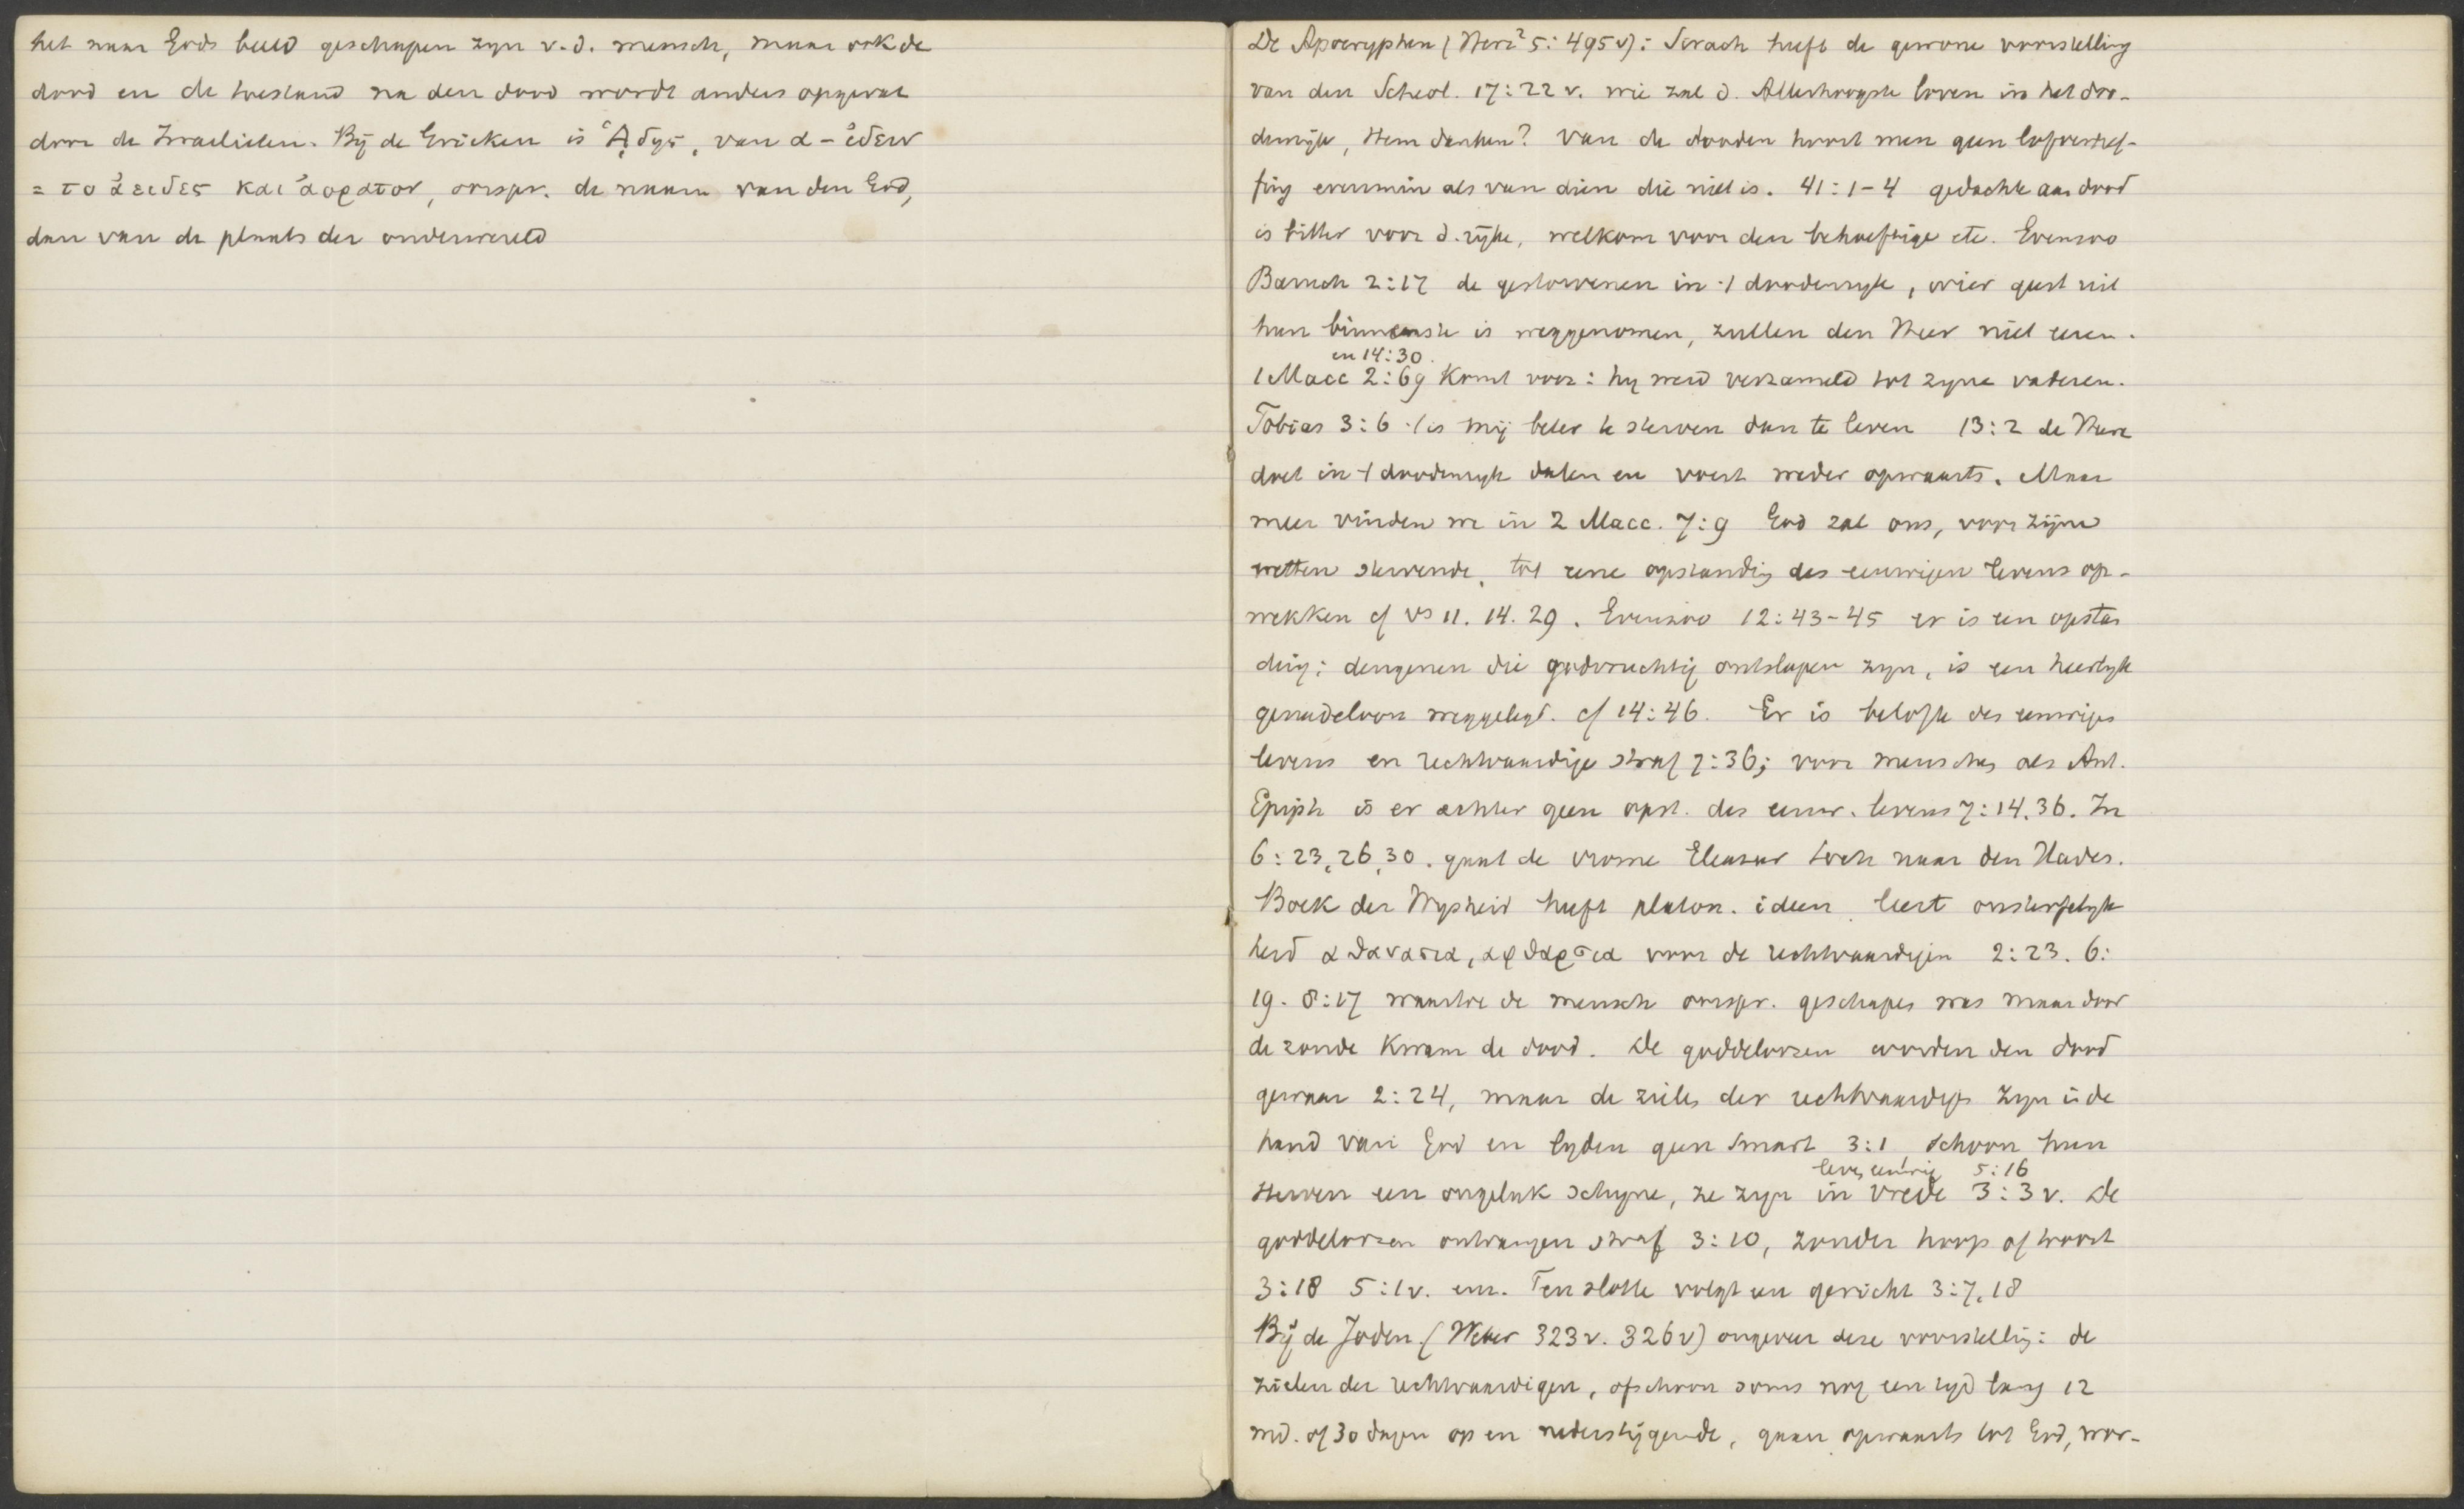 het naar Gods beeld geschapen zyn v. d. mensch, maar ook de
dood en de toestand na den dood wordt anders opgevat
door de Israelieten. Bij de Grieken is ᾍδης, van α-ἰδειν
= το ἀειδες και ἀορατον, oorspr. de naam van den God,
dan van de plaats der onderwereld
De Apocryphen (Herz² 5: 495 v): Sirach heeft de gewone voorstelling
van den Scheol. 17:22 v. wie zal d. Allerhoogste loven in het doo-
denrijk, Hem danken? Van de dooden hoort men geen lofverhef-
fing evenmin als van dien die niet is. 41:1-4 gedachte aan dood
is bitter voor d. rijke, welkom voor den behoeftige etc. Evenzoo
Baruch 2:17 de gestorvenen in 't doodenryk, wier geest uit
hun binnenste is weggenomen, zullen den Heer niet eeren.
en 14:30.
1 Macc 2:69 komt voor: hy werd verzameld tot zyne vaderen.
Tobias 3:6 't is mij beter te sterven dan te leven 13:2 de Heere
doet in 't doodenryk dalen en voert weder opwaarts. Maar
meer vinden we in 2 Macc. 7:9 God zal ons, voor zijne
wetten stervende, tot eene opstanding des eeuwigen levens op-
wekken cf vs 11. 14. 29. Evenzoo 12:43-45 er is een opstan
ding; dengenen die godvruchtig ontslapen zyn, is een heerlyk
genadeloon weggelegd. cf 14:46. Er is belofte des eeuwigen
levens en rechtvaardige straf 7:36; voor menschen als Ant.
Epiph is er echter geen opst. des eeuw. levens 7:14.36. In
6:23,26,30. gaat de vrome Eleazar toch naar den Hades.
Boek der Wysheid heeft platon. ideen, leert onsterfelyk
heid αθανασια, αφθαρσια voor de rechtvaardigen 2:23. 6:
19. 8:17 waartoe de mensch oorspr. geschapen was maar door
de zonde kwam de dood. De goddeloozen worden den dood
gewaar 2:24, maar de zielen der rechtvaardigen zyn in de
hand van God en lyden geen smart 3:1 schoon hun
leven eeuwig 5:16
sterven een ongeluk schyne, ze zyn in vrede 3:3 v. De
goddeloozen ontvangen straf 3:10, zonder hoop of troost
3:18 5:1 v. enz. Ten slotte volgt een gericht 3:7.18
Bij de Joden (Weber 323 v. 326 v) ongeveer deze voorstelling: de
zielen der rechtvaardigen, ofschoon soms nog een tyd lang 12
md. of 30 dagen op en nederstijgende, gaan opwaarts tot God, wor-